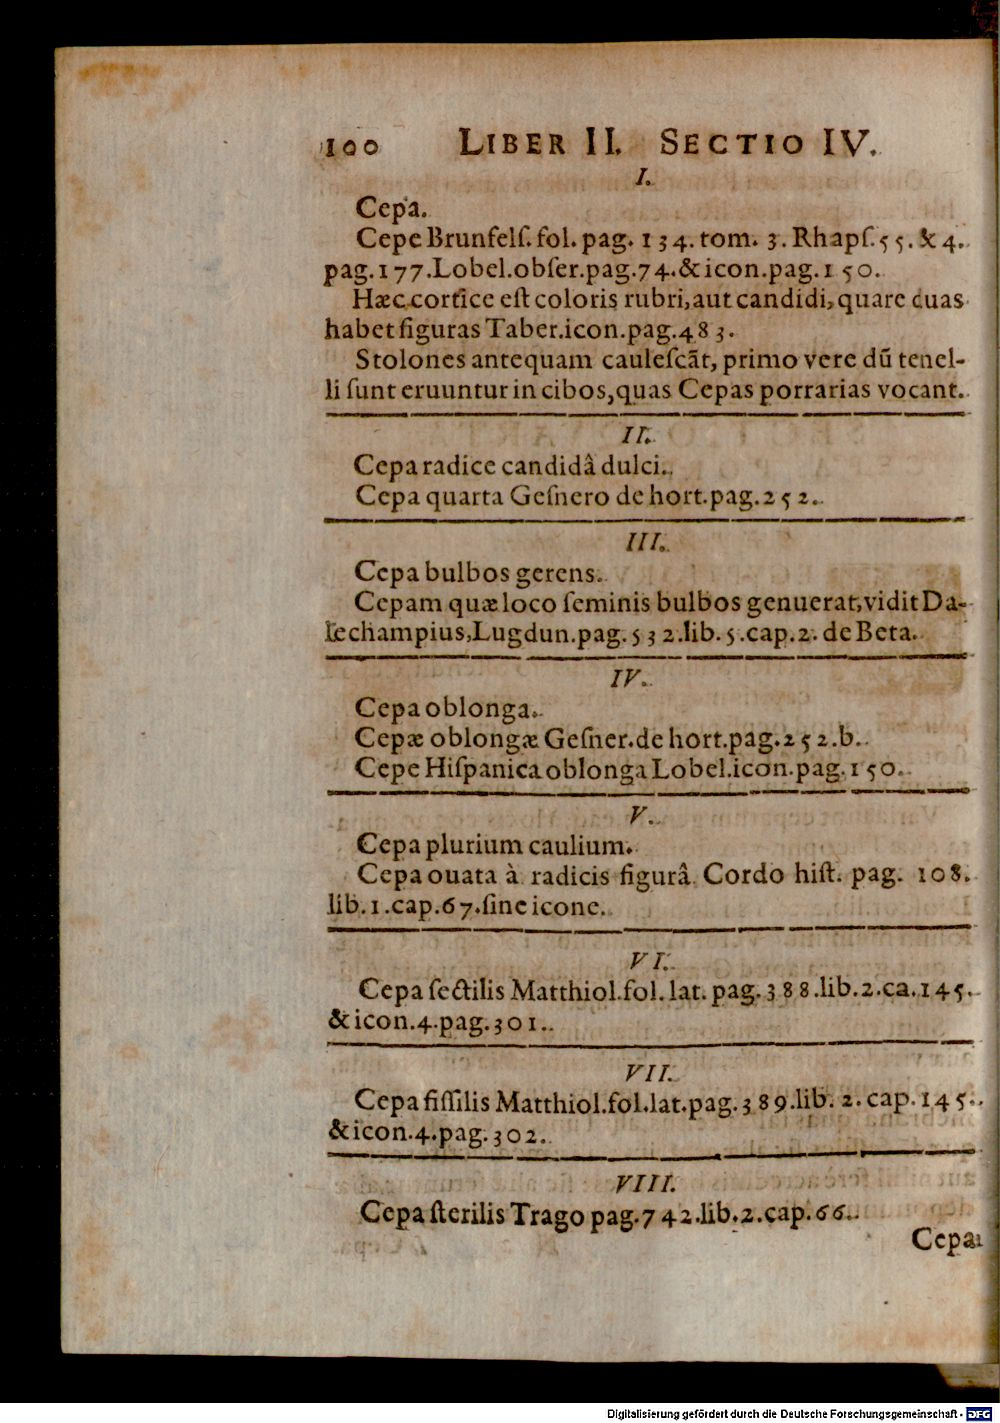 100 LIBER II. SECTIO IV.
I.
Cepa.
Cepe Brunfelſ. fol. pag. 134. tom. 3. Rhapſ. 55. & 4.
pag. 177. Lobel. obſer. pag. 74. & icon. pag. 150.
Hæc cortice eſt coloris rubri, aut candidi, quare duas
habet figuras Taber. icon. pag. 483.
Stolones antequam cauleſcãt, primo vere dũ tenel-
li ſunt eruuntur in cibos, quas Cepas porrarias vocant.
II.
Cepa radice candidâ dulci.
Cepa quarta Geſnero de hort. pag. 252.
III.
Cepa bulbos gerens.
Cepam quæ loco ſeminis bulbos genuerat, vidit Da-
lechampius, Lugdun. pag. 532. lib. 5. cap. 2. de Beta.
IV.
Cepa oblonga.
Cepæ oblongæ Geſner. de hort. pag. 252. b.
Cepe Hiſpanica oblonga Lobel. icon. pag. 150.
V.
Cepa plurium caulium.
Cepa ouata à radicis figurâ Cordo hiſt. pag. 108.
lib. 1. cap. 67. ſine icone.
VI.
Cepa ſectilis Matthiol. fol. lat. pag. 388. lib. 2. ca. 145.
& icon. 4. pag. 301.
VII.
Cepa fiſſilis Matthiol. fol. lat. pag. 389. lib. 2. cap. 145.
& icon. 4. pag. 302.
VIII.
Cepa ſterilis Trago pag. 742. lib. 2. cap. 66.
Cepa
Digitalisierung gefördert durch die Deutsche Forschungsgemeinschaft - DFG